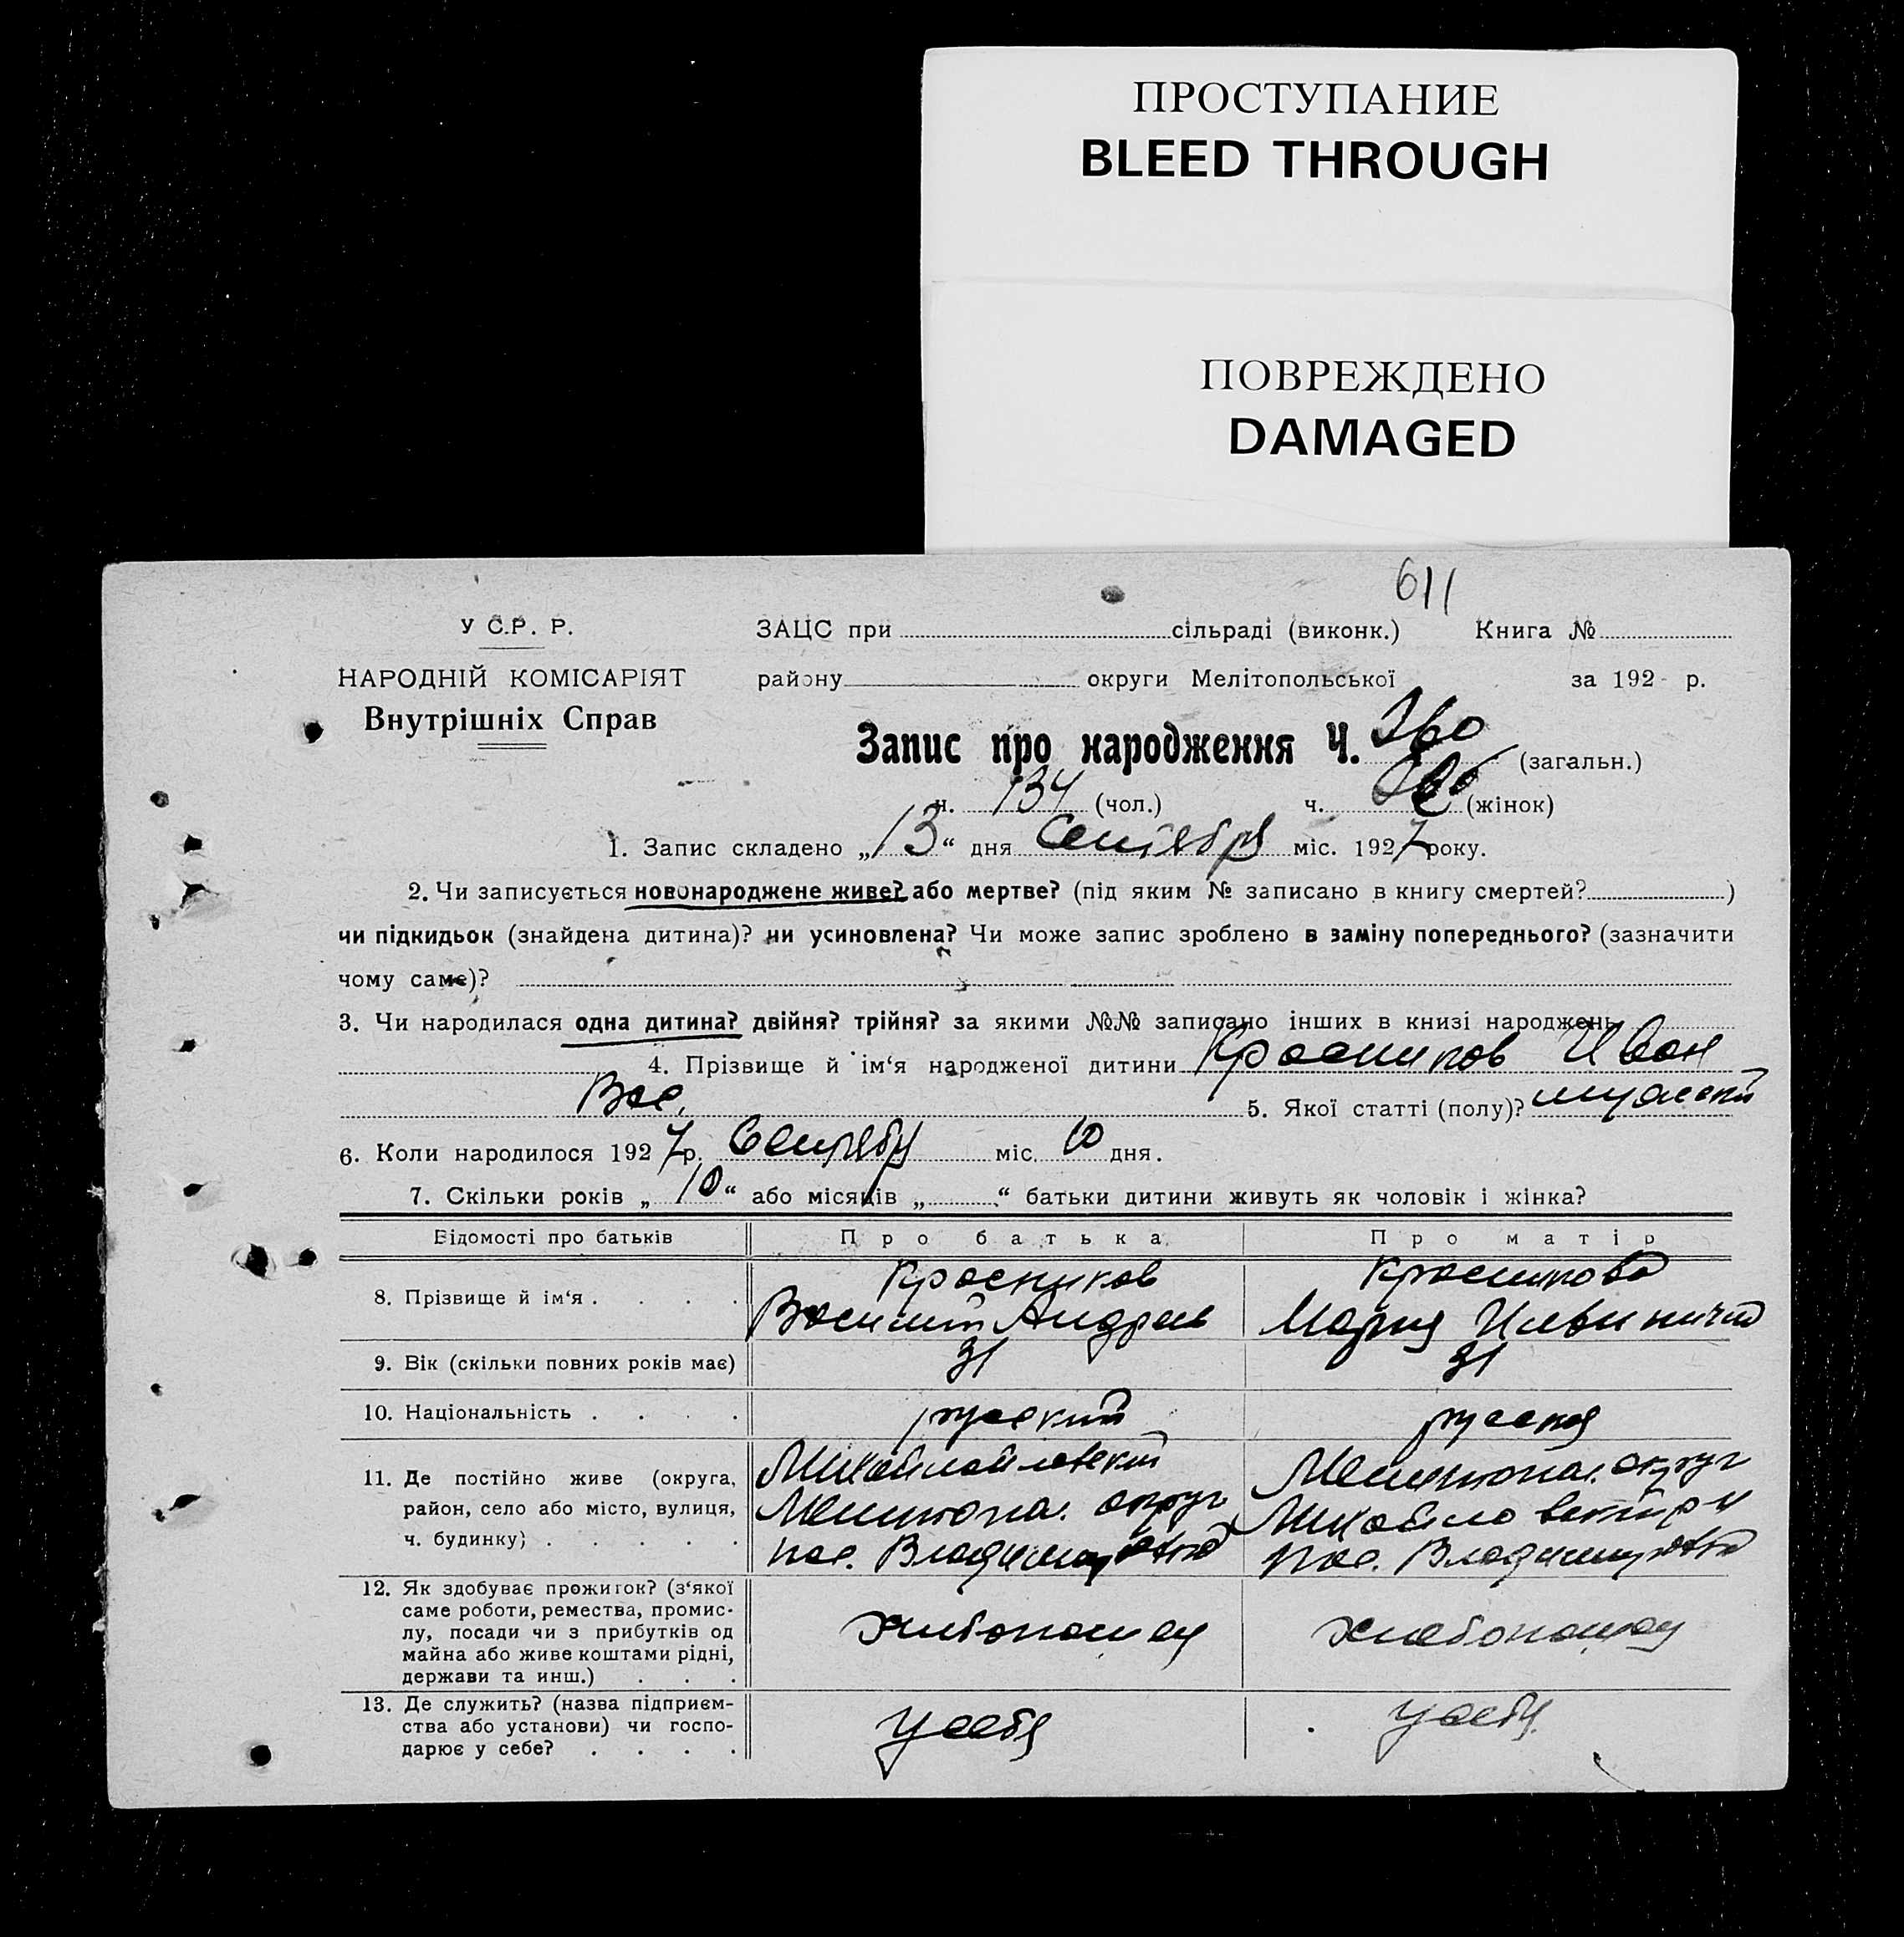 ПРОСТУПАНИЕ
BLEED THROUGH
ПОВРЕЖДЕНО
DAMAGED
611
У С.Р. Р.
ЗАЦС при сільраді (виконк.) Книга №
НАРОДНІЙ КОМІСАРІЯТ
району округи Мелітопольської за 192 р.
Внутрішніх Справ
Запис про народження Ч. 260 (загальн.)
ч. 134 (чол.) ч. (жінок)
1. Запис складено „13“ дня Сентября міс. 1927 року.
2. Чи записується новонароджене живе? або мертве? (під яким № записано в книгу смертей? )
чи підкидьок (знайдена дитина)? чи усиновлена? Чи може запис зроблено в заміну попереднього? (зазначити
чому саме)?
3. Чи народилася одна дитина? двійня? трійня? за якими №№ записано інших в книзі народжень
4. Прізвище й ім‘я народженої дитини Красников Иван
Вас. 5. Якої статті (полу)? мужский
6. Коли народилося 1927 р. Сентября міс. 10 дня.
7. Скільки років „10“ або місяців „ “ батьки дитини живуть як чоловік і жінка?
Відомості про батьків Про батька Про матір
8. Прізвище й ім‘я . . . . Красников Красникова
Василий Андреев Мария Ильинична
9. Вік (скільки повних років має) 31 31
10. Національність . . . . русский русская
11. Де постійно живе (округа, район, село або місто, вулиця, ч. будинку) . . . . .
Мелитопол. округ Мелитопол. округ
пос. Владимировка пос. Владимировка
12. Як здобуває прожиток? (з‘якої
саме роботи, ремества, промис-
лу, посади чи з прибутків од
майна або живе коштами рідні,
держави та инш.) . . .
хлебопашец хлебопашец
13. Де служить? (назва підприєм-
ства або установи) чи госпо-
дарює у себе? . . . .
у себя у себя